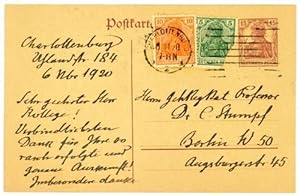 Postkarte
10
5
15
Charlottenburg
Uhlandstr. 184
6 Nov 1920
7-8N.
Sehr geehrter Herr
Kollege!
Verbindlichsten
Dank für Ihre so
rasch erfolgte und
genaue Auskunft!
Insbesondere danke
Herrn Professor
Dr C Stumpf
Berlin W 50
Augsburgerstr. 45